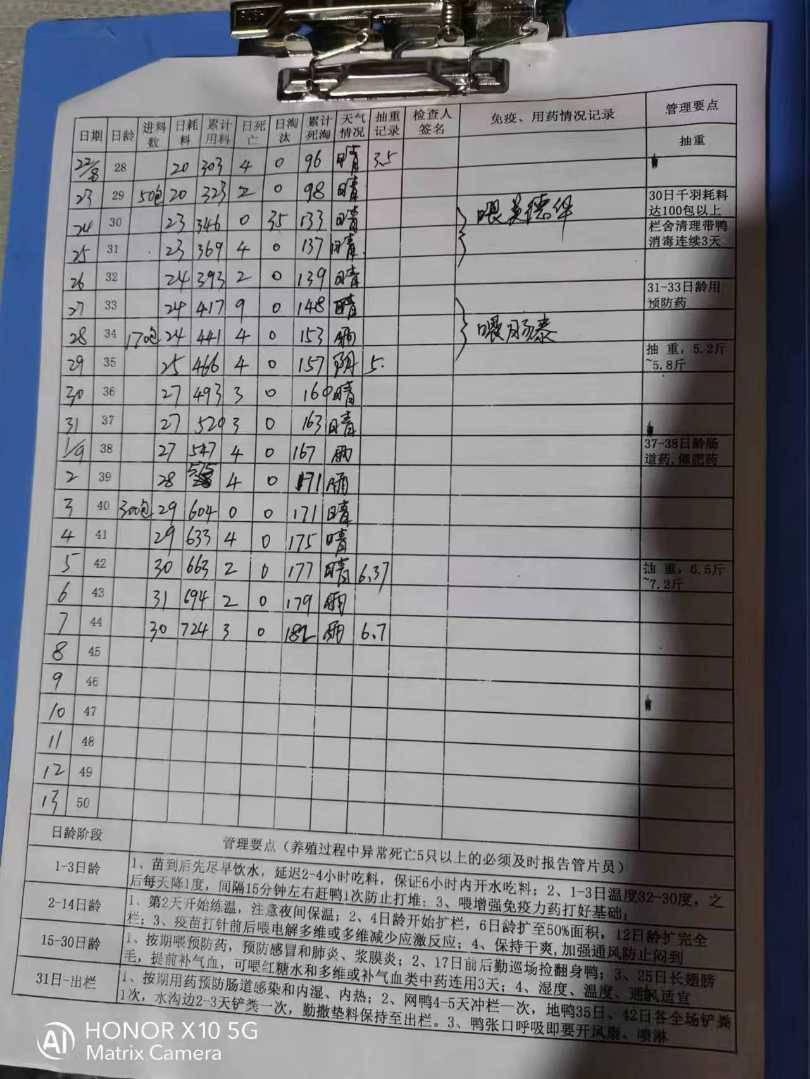 日期 日龄 进料数 日耗料 累计用料 日死亡 日淘汰 累计死淘 天气情况 抽重记录 检查人签名 免疫、用药情况记录 管理要点
抽重
22/8 28 20 303 4 0 96 晴 3.5
23 29 50包 20 323 2 0 98 晴
30日千羽耗料达100包以上
24 30 23 346 0 35 133 晴 喂美德华
栏舍清理带鸭消毒连续3天
25 31 23 369 4 0 137 晴
26 32 24 393 2 0 139 晴
31-33日龄用预防药
27 33 24 417 9 0 148 晴
28 34 170包 24 441 4 0 153 雨 喂肠泰
29 35 25 466 4 0 157 阴 5.
抽重，5.2斤~5.8斤
30 36 27 493 3 0 160 晴
31 37 27 520 3 0 163 晴
1/9 38 27 547 4 0 167 雨
37-38日龄肠道药,催肥药
2 39 28 575 4 0 171 雨
3 40 300包 29 604 0 0 171 晴
4 41 29 633 4 0 175 晴
5 42 30 663 2 0 177 晴 6.37
抽重，6.5斤~7.2斤
6 43 31 694 2 0 179 雨
7 44 30 724 3 0 182 雨 6.7
8 45
9 46
10 47
11 48
12 49
13 50
日龄阶段 管理要点（养殖过程中异常死亡5只以上的必须及时报告管片员）
1-3日龄 1、苗到后先尽早饮水，延迟2-4小时吃料，保证6小时内开水吃料；2、1-3日温度32-30度，之
后每天降1度，间隔15分钟左右赶鸭1次防止打堆；3、喂增强免疫力药打好基础；
2-14日龄 1、第2天开始练温，注意夜间保温；2、4日龄开始扩栏，6日龄扩至50%面积，12日龄扩完全
栏；3、疫苗打针前后喂电解多维或多维减少应激反应；4、保持干爽,加强通风防止闷到
15-30日龄 1、按期喂预防药，预防感冒和肺炎、浆膜炎；2、17日前后勤巡场捡翻身鸭；3、25日长翅膀
毛，提前补气血，可喂红糖水和多维或补气血类中药连用3天；4、湿度、温度、通风适宜
31日-出栏 1、按期用药预防肠道感染和内湿、内热；2、网鸭4-5天冲栏一次，地鸭35日、42日各全场铲粪
1次，水沟边2-3天铲粪一次，勤撒垫料保持至出栏。3、鸭张口呼吸即要开风扇、喷淋
HONOR X10 5G
Matrix Camera